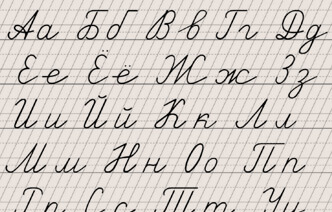 Аа Бб Вв Гг Дд
Ее Ёё Жж Зз
Ии Йй Кк Лл
Мм Нн Оо Пп
Рр Сс Тт Уу